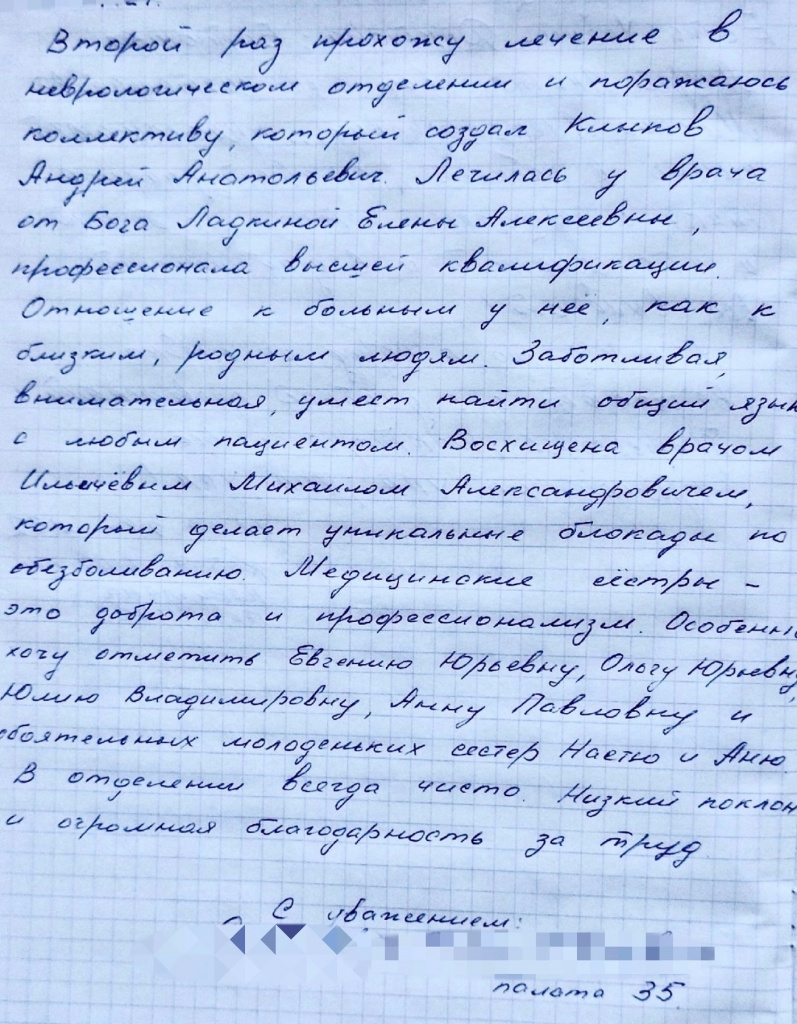 Второй раз прохожу лечение в
неврологическом отделении и поражаюсь
коллективу, который создал Клыков
Андрей Анатольевич. Лечилась у врача
от Бога Ладкиной Елены Алексеевны,
профессионала высшей квалификации.
Отношение к больным у неё, как к
близким, родным людям. Заботливая,
внимательная, умеет найти общий язык
с любым пациентом. Восхищена врачом
Михаилом Александровичем,
который делает уникальные блокады по
обезболиванию. Медицинские сёстры –
это доброта и профессионализм. Особенно
хочу отметить Евгению Юрьевну, Ольгу Юрьевну,
Юлию Владимировну, Анну Павловну и
обоятельных молоденьких сестер Настю и Аню.
В отделении всегда чисто. Низкий поклон
и огромная благодарность за труд.
С уважением:
палата 35.